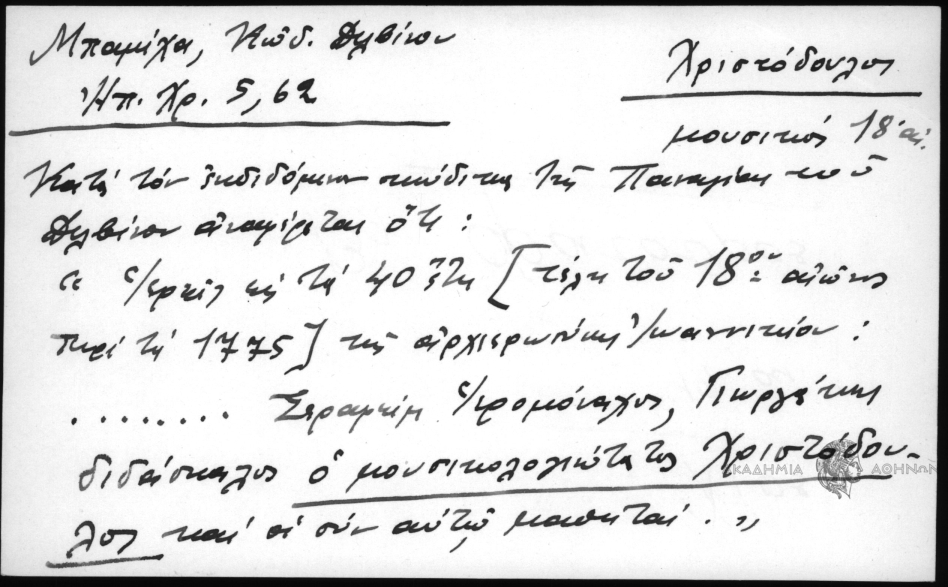 Μπαμίχα, Κώδ. Δελβίνου
Ἠπ. Χρ. 5, 62
Χριστόδουλος
μουσικός 18' αἰ.
Κατά τόν ἐκδιδόμενον κώδικα τῆς Παναγίας τοῦ
Δελβίνου ἀναφέρεται ὅτι :
" Ἱερεῖς εἰς τά 40 ἔτη [τέλη τοῦ 18ου αἰῶνος
περί τά 1775] τῆς ἀρχιερωσύνης Ἰωαννικίου :
........ Σεραφείμ ἱερομόναχος, Γεωργάκης
διδάσκαλος ὁ μουσικολογιώτατος Χριστόδου-
λος καί οἱ σύν αὐτῷ μαθηταί . "
ΑΚΑΔΗΜΙΑ ΑΘΗΝΩΝ